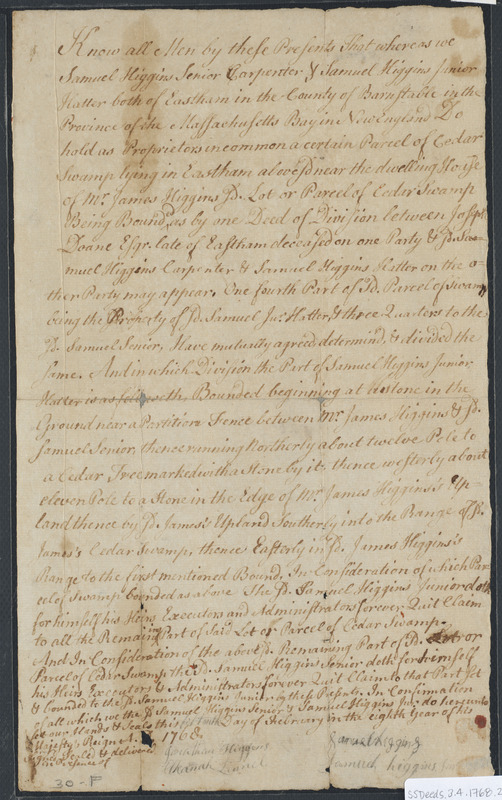 Know all Men by these Presents that whereas we
Samuel Higgins Senior Carpenter & Samuel Higgins Junior
Hatter both of Eastham in the County of Barnstable in the
Province of the Massachusetts Bay in New England Do
hold as Proprietors in common a certain Parcel of Cedar
Swamp lying in Eastham aboves:d near the dwelling House
of Mr. James Higgins S:d Lot or Parcel of Cedar Swamp
Being Bound as by one Deed of Division between Joseph
Doane Esqr. late of Eastham deceased on one Party & S:d Sa-
muel Higgins Carpenter & Samuel Higgins Hatter on the o-
ther Party may appear. One fourth Part of S:d Parcel of Swamp
being the Property of S:d Samuel Jur. Hatter, & three Quarters to the
S:d Samuel Senior, Have mutually agreed determin'd, & divided the
same. And in which Division the Part of Samuel Higgins Junior
Hatter is as followeth Bounded beginning at a stone in the
Ground near a Partition Fence between Mr. James Higgins & S:d
Samuel Senior, thence running Northerly about twelve Pole to
a Cedar Tree marked with a Stone by it, thence westerly about
eleven Pole to a Stone in the Edge of Mr. James Higgins's Up-
land thence by S:d James's Upland Southerly into the Range of S:d
James's Cedar Swamp, thence Easterly in S:d James Higgins's
Range to the first mentioned Bound. In Consideration of which Par-
cel of Swamp bounded as above The S:d Samuel Higgins Junior doth
for himself his Heirs Executors and Administrators forever Quit Claim
to all the Remaing Part of Said Lot or Parcel of Cedar Swamp.
And In Consideration of the above S:d Remaining Part of S:d Lot or
Parcel of Cedar Swamp the S:d Samuel Higgins Senior doth for himself
his Heirs Executors & Administrators forever Quit Claim to that Part Set
& bounded to the S:d Samuel Higgins Junior by these Presents. In Confirmation
of all which we the S:d Samuel Higgins Senior & Samuel Higgins Jur. do hereunto
Set our Hands & Seals this Day of February in the eighth Year of his
Majesty's Reign A. 1768.
Signed Seal'd & delivered
in Presence of
Jonathan Higgins
Elkanah Linnel
Samuel Higgins
Samuel Higgins
30-F
SSDeeds_3.4.1768.2